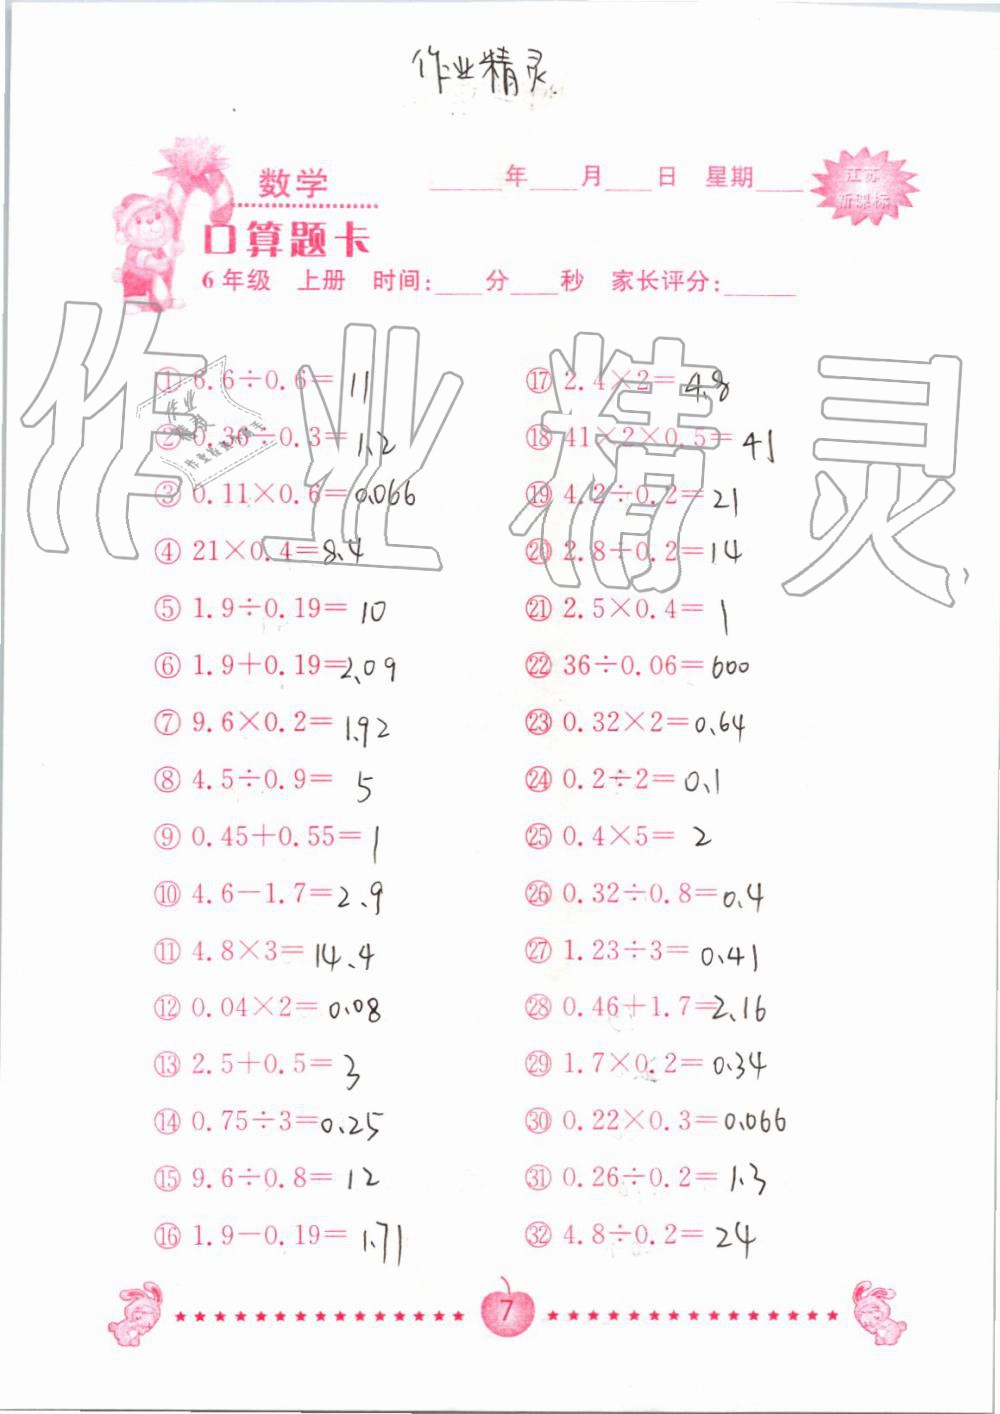 作业精灵
数学
____年____月____日 星期____
江苏
新课标
口算题卡
6年级 上册 时间:____分____秒 家长评分:____
作业精灵
① 6.6÷0.6= 11
② 0.36÷0.3= 1.2
③ 0.11×0.6= 0.066
④ 21×0.4= 8.4
⑤ 1.9÷0.19= 10
⑥ 1.9+0.19= 2.09
⑦ 9.6×0.2= 1.92
⑧ 4.5÷0.9= 5
⑨ 0.45+0.55= 1
⑩ 4.6-1.7= 2.9
⑪ 4.8×3= 14.4
⑫ 0.04×2= 0.08
⑬ 2.5+0.5= 3
⑭ 0.75÷3= 0.25
⑮ 9.6÷0.8= 12
⑯ 1.9-0.19= 1.71
⑰ 2.4×2= 4.8
⑱ 41×2×0.5= 41
⑲ 4.2÷0.2= 21
⑳ 2.8÷0.2= 14
㉑ 2.5×0.4= 1
㉒ 36÷0.06= 600
㉓ 0.32×2= 0.64
㉔ 0.2÷2= 0.1
㉕ 0.4×5= 2
㉖ 0.32÷0.8= 0.4
㉗ 1.23÷3= 0.41
㉘ 0.46+1.7= 2.16
㉙ 1.7×0.2= 0.34
㉚ 0.22×0.3= 0.066
㉛ 0.26÷0.2= 1.3
㉜ 4.8÷0.2= 24
7